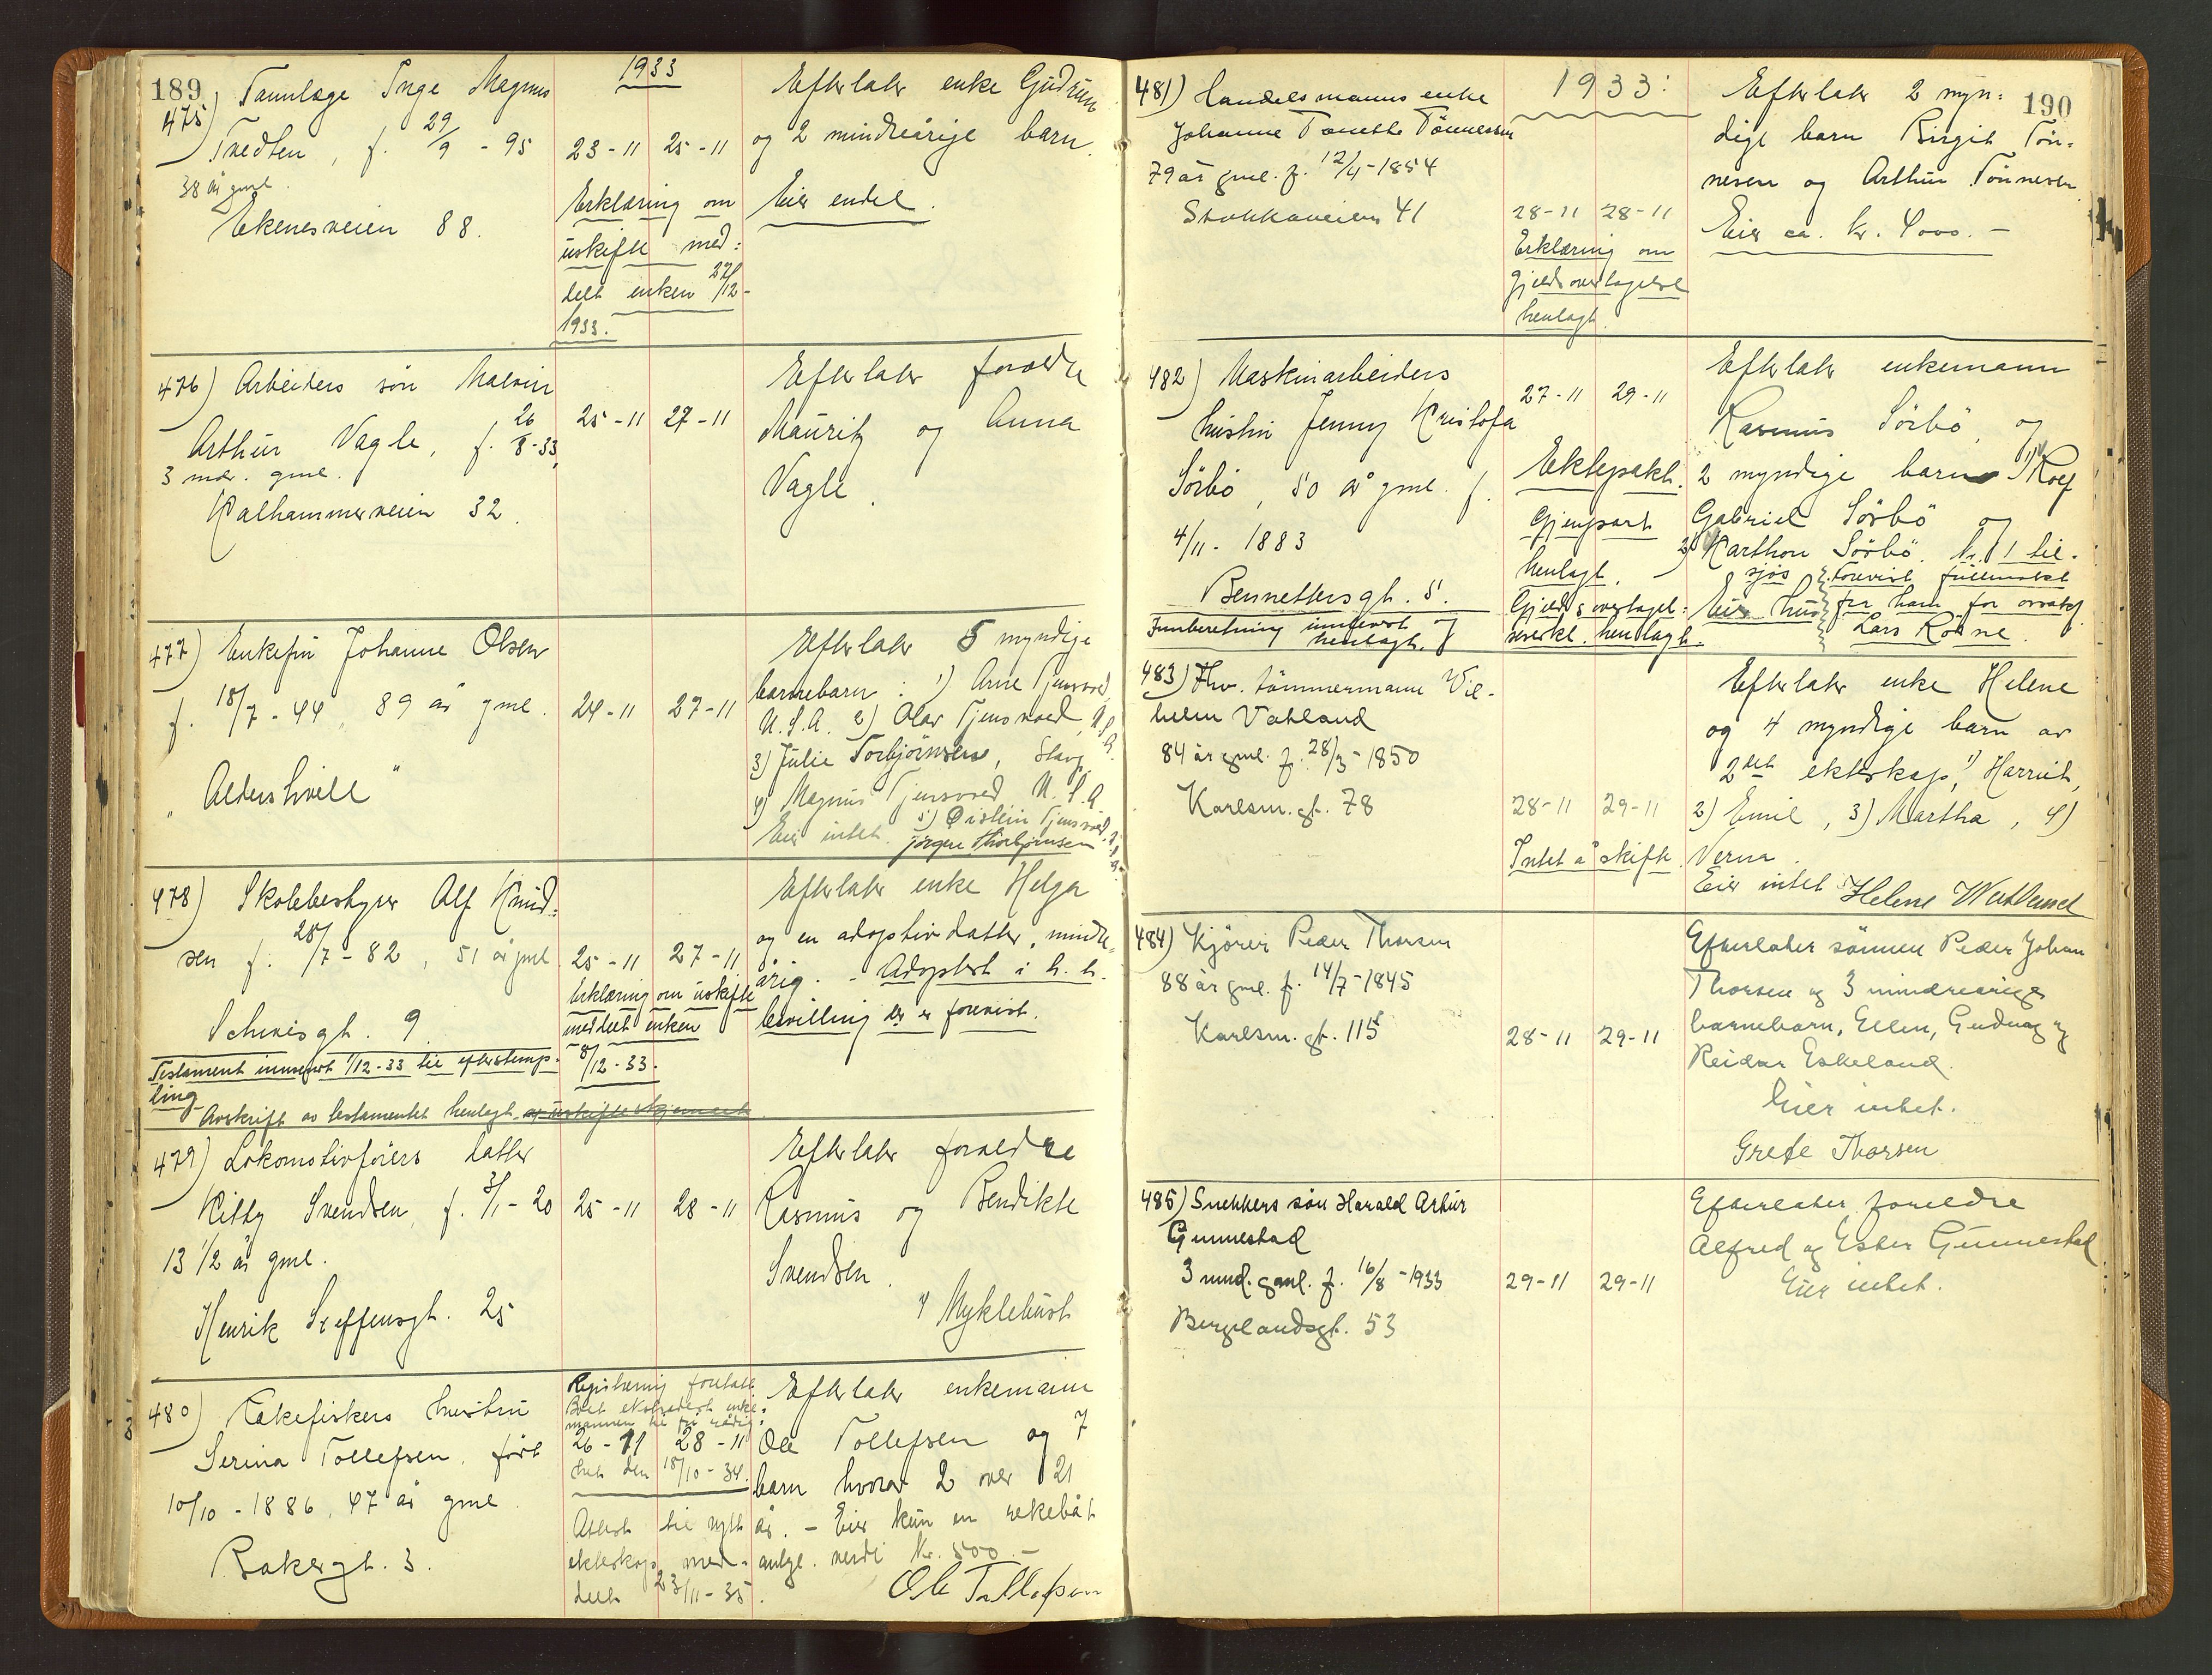 189
1933
475) Tannlæge Inge Magnus
Tvedten, f. 29/9 - 95
38 år gml.
Ekenesveien 88.
23-11 25-11
Erklæring om
uskifte med:
delt enken 27/12-
1933.
Efterlater enke Gudrun
og 2 mindreårige barn.
Eier endel.
476) Arbeiders søn Malvin
Arthur Vagle, f. 26/8-33,
3 mdr. gml.
Kalhammerveien 32.
25-11 27-11
Efterlater foreldre
Mauritz og Anna
Vagle.
477) Enkefru Johanne Olsen
f. 18/7-44, 89 år gml.
"Aldershvile"
24-11 27-11
Efterlater 5 myndige
barnebarn: 1) Arne Tjensvoed,
U.S.A. 2) Olav Tjensvoed, U.S.A.
3) Julie Torbjörnsen, Stavg.
4) Magnus Tjensvoed U.S.A.
5) Øistein Tjensvoed, U.S.A.
Eier intet. Jörgen Thorbjørnsen
478) Skolebestyrer Alf Knud-
sen f. 28/7-82, 51 år gml.
Schivesgt. 9
25-11 27-11
Erklæring om uskifte
meddelt enken
8/12-33.
Efterlater enke Helga
og en adoptivdatter, mindre-
årig. - Adoptert i h. t.
bevilling der er forevist.
Testament innsendt 1/12-33 til efterstemp-
ling
Avskrift av testamentet henlagt
479) Lokomotivförers datter
Kitty Svendsen, f. 3/1-20
13 1/2 år gml.
Henrik Steffensgt. 25
25-11 28-11
Efterlater foreldre
Rasmus og Bendikte
Svendsen.
Myklebust
480) Rækefiskers hustru
Serina Tollefsen, född
10/10-1886, 47 år gml.
Bakergt. 3.
Registrering foretatt
Boet ekstradert enke-
mannen til fri rådig-
26-11 28-11
het den 18/10-34.
Attest til nytt
ekteskap med-
delt 23/11-35.
Efterlater enkemann
Ole Tollefsen og 7
barn hvorav 2 over 21
år. - Eier kun en rekebåt
antgl. verdi kr. 500.-
Ole Tollefsen
190
1933:
481) Handelsmanns enke
Johanne Tonette Tönnessen
79 år gml. f. 12/4-1854
Stokkaveien 41
28-11 28-11
Erklæring om
gjeldsovertagelse
henlagt.
Efterlater 2 myn:
dige barn Birgit Tön-
nesen og Arthur Tönnesen
Eier ca. kr. 4000.-
482) Maskinarbeiders
hustru Jenny Kristofa
Sörbö, 50 år gml. f.
4/11-1883
Bennettersgt. 5.
Innberetning innsendt og
henlagt.
27-11 29-11
Ektepakt.
Gjenpart
henlagt.
Gjeldsovertagel:
seserkl. henlagt.
Efterlater enkemann
Rasmus Sörbö, og
2 myndige barn 1) Rolf
Gabriel Sörbö og
2) Karthon Sörbö. Nr. 1 til-
sjøs Forevist fullmakt
Eier hus for ham for orsakf.
Lars Rönne.
483) Fhv. tömmermann Vil-
helm Vatland
84 år gml. f. 28/3-1850
Karlsm. gt. 78
28-11 29-11
Intet å skifte.
Efterlater enke Helene
og 4 myndige barn av
2det ekteskap, 1) Harriet,
2) Emil, 3) Martha, 4)
Verna.
Eier intet Helene Watland
484) Kjörer Peder Thorsen
88 år gml. f. 14/7-1845
Karlsm. gt. 115
28-11 29-11
Efterlater sönnen Peder Johan
Thorsen og 3 mindreårige
barnebarn, Ellen, Gudny og
Reidar Eskeland.
Eier intet.
Grete Thorsen
485) Snekkers sön Harald Artur
Gunnestad
3 mnd. gml. f. 16/8-1933
Bergelandsgt. 53
29-11 29-11
Efterlater foreldre
Alfred og Ester Gunnestad
Eier intet.